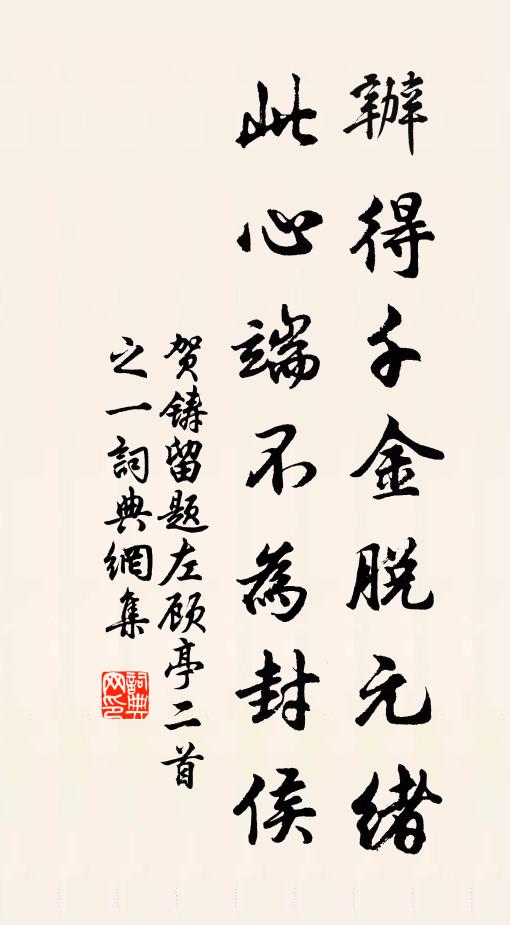 辦得千金脱元緒
此心端不為封侯
贺鑄留题左顾亭二首
之一詞典網集
詞典网印